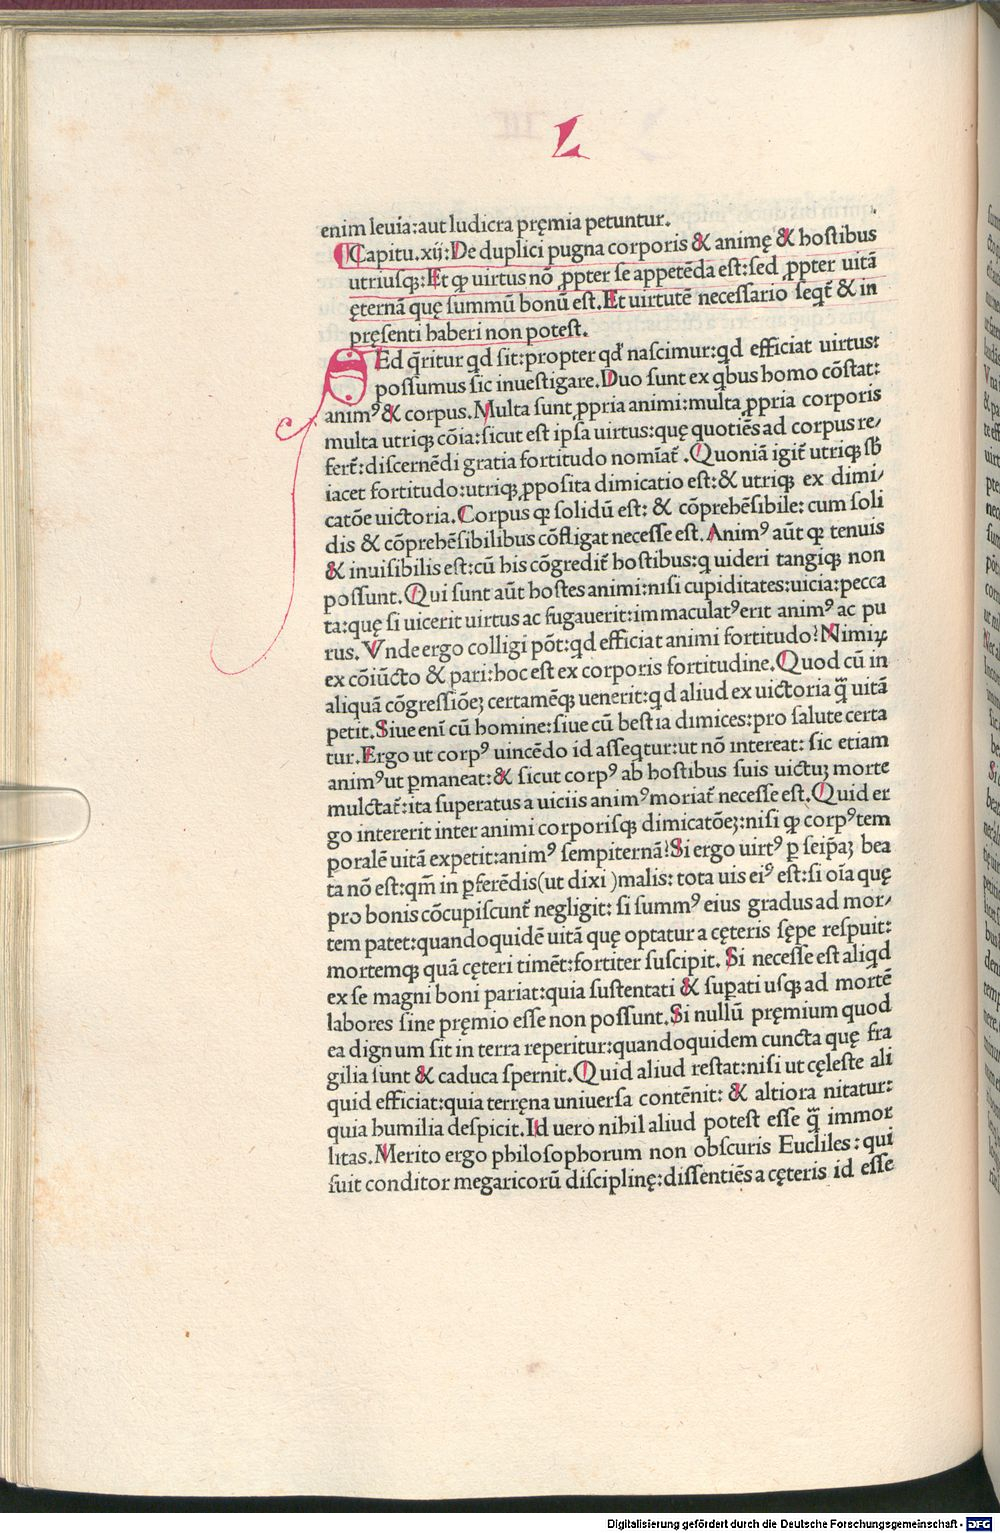 L
enim leuia:aut ludicra pręmia petuntur.
¶Capitu.xij:De duplici pugna corporis & animę & hostibus
utriusqꝫ:Et qꝫ uirtus nō ꝓpter se appetēda est:sed ꝓpter uitā
ęternā quę summū bonū est.Et uirtutē necessario seqt̄ & in
pręsenti haberi non potest.
SEd q̄ritur qd sit:propter qd' nascimur:qd efficiat uirtus:
possumus sic inuestigare.Duo sunt ex qbus homo cōstat:
animꝰ & corpus.Multa sunt ꝓpria animi:multa ꝓpria corporis
multa utriqꝫ cōia:sicut est ipsa uirtus:quę quotiēs ad corpus re/
fert̄:discernēdi gratia fortitudo nomīat̄.Quoniā igit̄ utriqꝫ sb̄
iacet fortitudo:utriqꝫ ꝓposita dimicatio est:& utriqꝫ ex dimi/
catōe uictoria.Corpus qꝫ solidū est: & cōprehēsibile: cum soli
dis & cōprehēsibilibus cōfligat necesse est.Animꝰ aūt qꝫ tenuis
& inuisibilis est:cū his cōgredit̄ hostibus:q uideri tangiqꝫ non
possunt.Qui sunt aūt hostes animi:nisi cupiditates:uicia:pecca
ta:quę si uicerit uirtus ac fugauerit:immaculatꝰ erit animꝰ ac pu
rus.Vnde ergo colligi pōt:qd efficiat animi fortitudo?Nimiꝝ
ex cōiūcto & pari:hoc est ex corporis fortitudine.Quod cū in
aliquā cōgressiōeꝫ certamēqꝫ uenerit:qd aliud ex uictoria q̄ uitā
petit.Siue enī cū homine:siue cū bestia dimices:pro salute certa
tur.Ergo ut corpꝰ uincēdo id asseqtur:ut nō intereat: sic etiam
animꝰ ut ꝑmaneat:& sicut corpꝰ ab hostibus suis uictuꝫ morte
mulctat̄:ita superatus a uiciis animꝰ moriat̄ necesse est.Quid er
go intererit inter animi corporisqꝫ dimicatōeꝫ:nisi qꝫ corpꝰ tem
poralē uitā expetit:animꝰ sempiternā?Si ergo uirtꝰ ꝑ seip̄aꝫ bea
ta nō est:qm̄ in ꝑferēdis(ut dixi )malis: tota uis eiꝰ est:si oīa quę
pro bonis cōcupiscunt̄ negligit: si summꝰ eius gradus ad mor/
tem patet:quandoquidē uitā quę optatur a cęteris sępe respuit:
mortemqꝫ quā cęteri timēt:fortiter suscipit. Si necesse est aliqd
ex se magni boni pariat:quia sustentati & suꝑati usqꝫ ad mortē
labores sine pręmio esse non possunt.Si nullū pręmium quod
ea dignum sit in terra reperitur:quandoquidem cuncta quę fra
gilia sunt & caduca spernit.Quid aliud restat:nisi ut cęleste ali
quid efficiat:quia terręna uniuersa contēnit: & altiora nitatur:
quia humilia despicit.Id uero nihil aliud potest esse q̄ immor
litas.Merito ergo philosophorum non obscuris Eucliles: qui
fuit conditor megaricorū disciplinę:dissentiēs a cęteris id esse
Digitalisierung gefördert durch die Deutsche Forschungsgemeinschaft - DFG